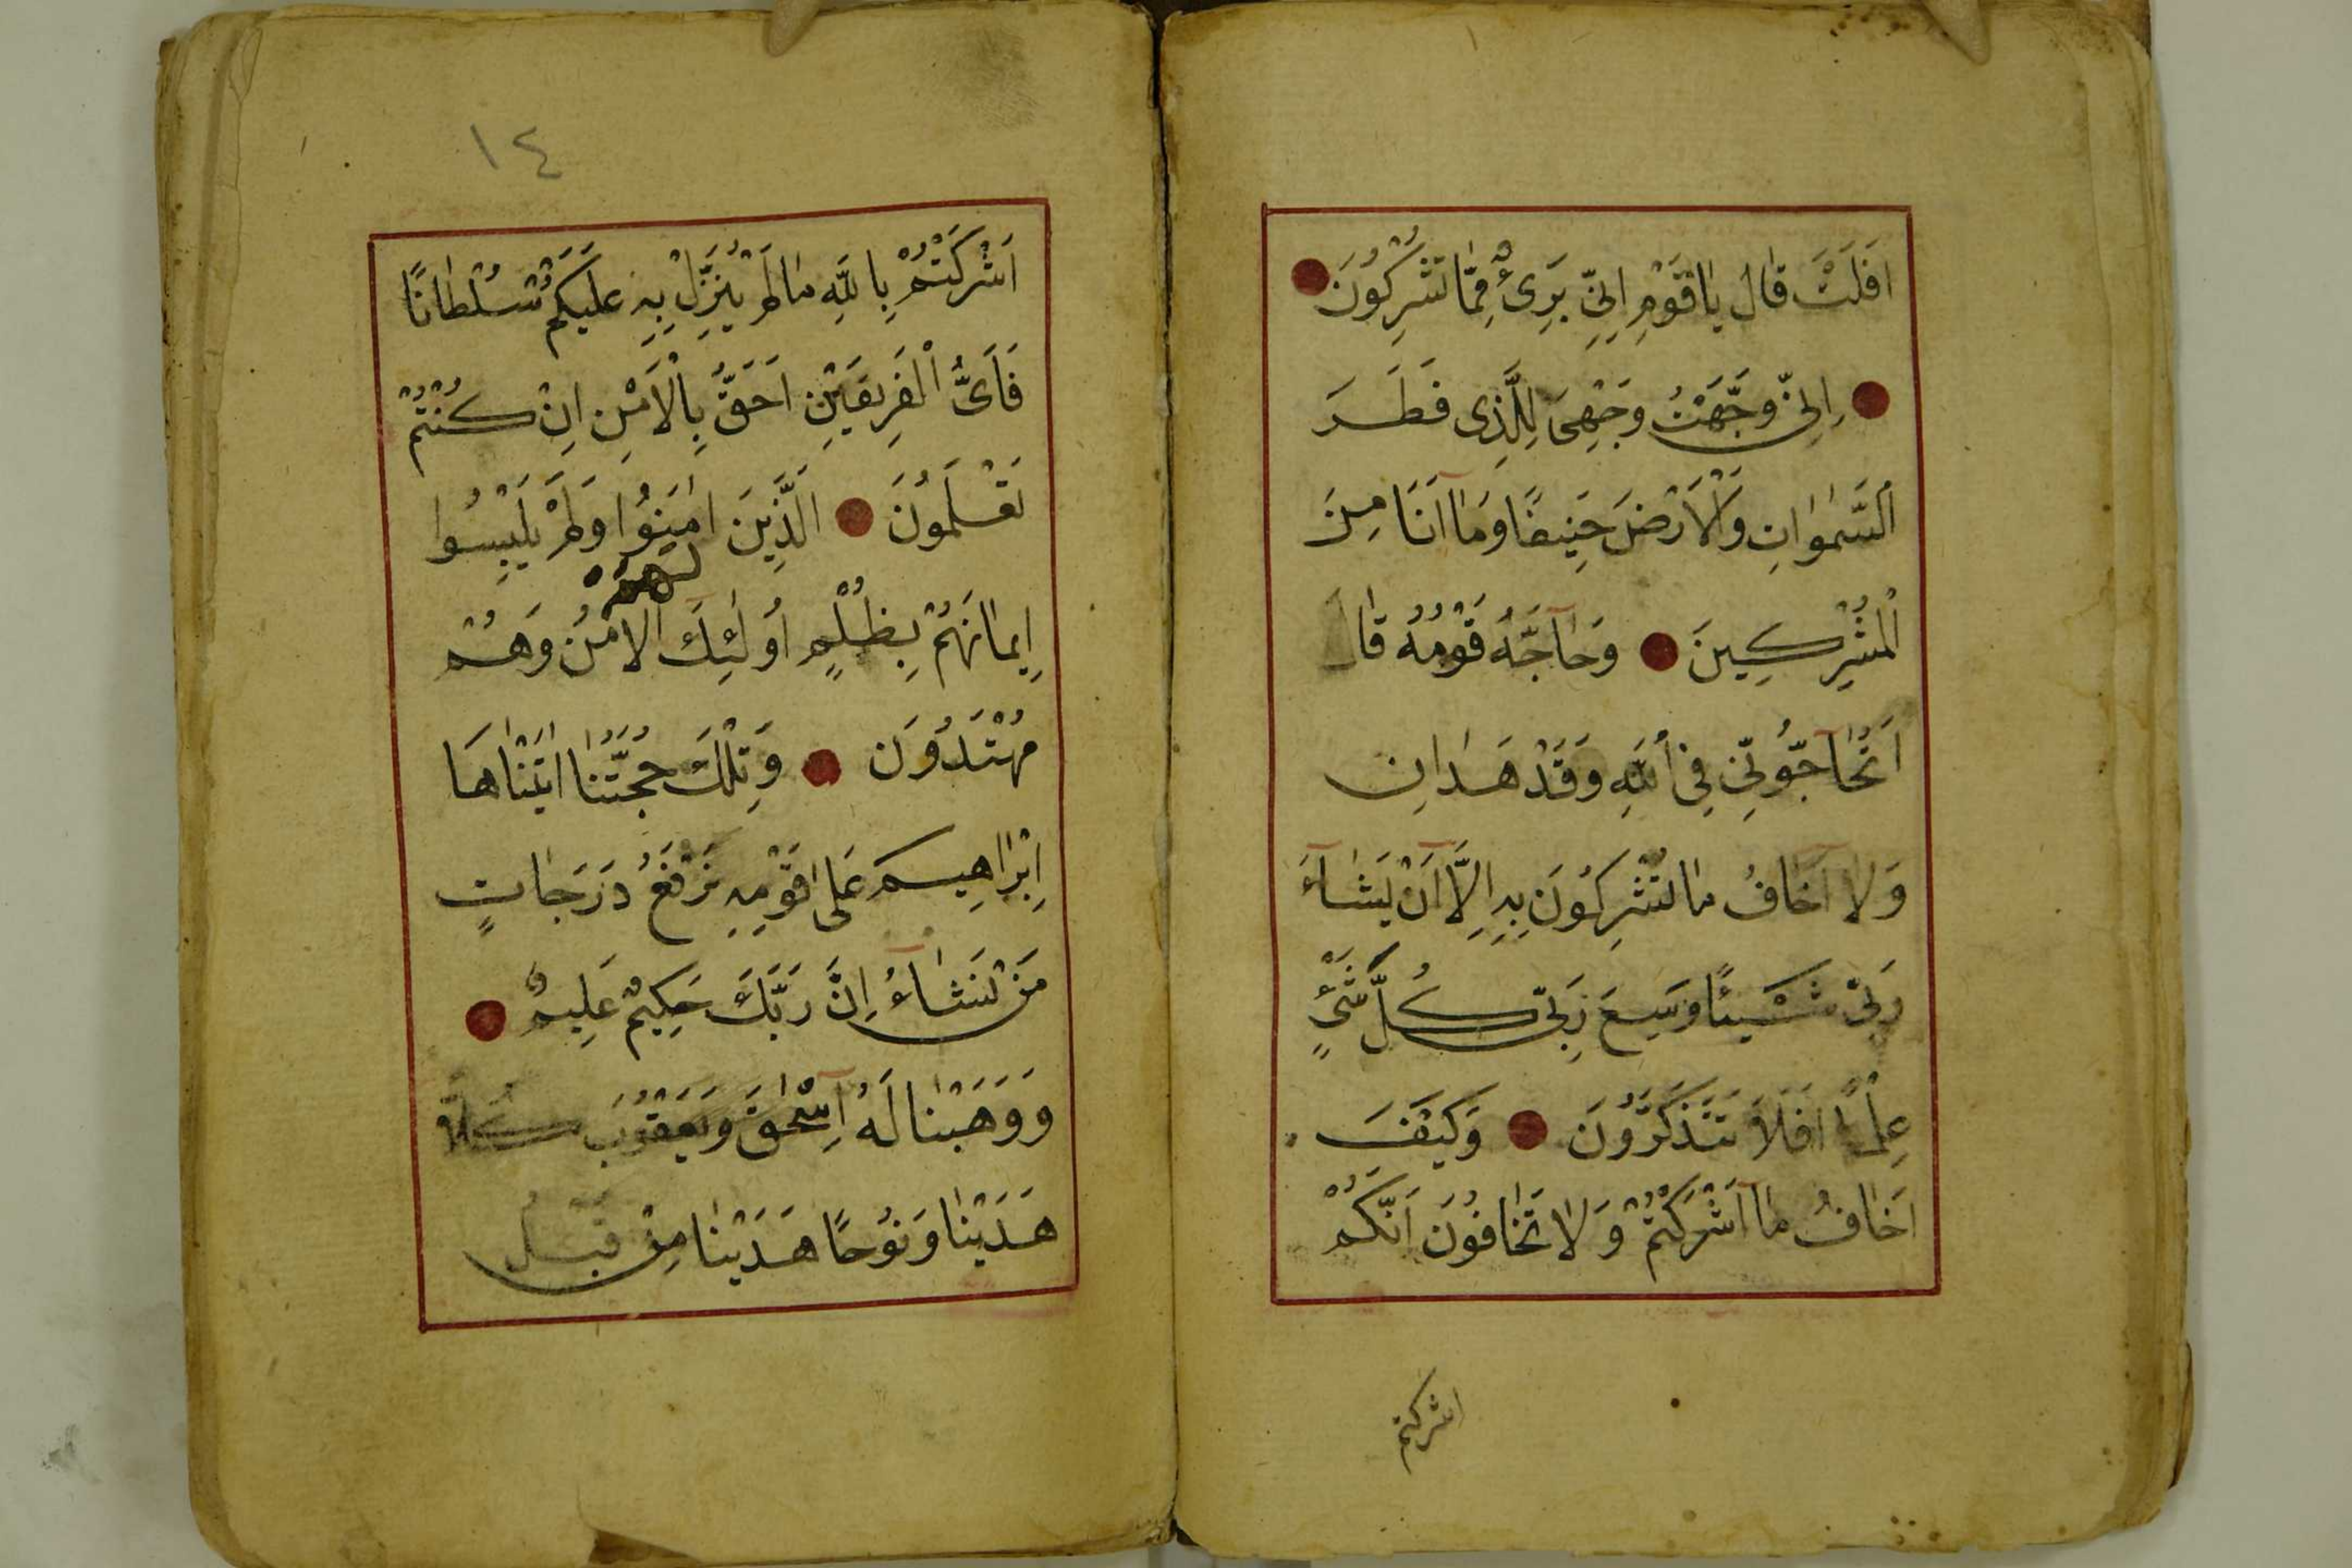 اَفَلَتْ قٰالَ يٰاقَوْمِ اِنِّي بَرِىءٌ مِمّٰا تُشْرِكُونَ
اِنِّي وَجَّهْتُ وَجْهِيَ لِلَّذِى فَطَرَ
اَلسَّمٰوٰاتِ وَالْاَرْضَ حَنِيفًا وَمٰا اَنَا مِنَ
الْمُشْرِكِينَ وَحٰاجَّهُ قَوْمُهُ قٰالَ
اَتُحٰاجُّونِّي فِي اللّٰهِ وَقَدْ هَدٰانِ
وَلٰا اَخٰافُ مٰا تُشْرِكُونَ بِهِ اِلَّا اَنْ يَشٰاءَ
رَبِّي شَيْئًا وَسِعَ رَبِّي كُلَّ شَيْءٍ
عِلْمًا اَفَلَا تَتَذَكَّرُونَ وَكَيْفَ
اَخٰافُ مٰا اَشْرَكْتُمْ وَلٰا تَخٰافُونَ اَنَّكُمْ
اشركتم
١٤
اَشْرَكْتُمْ بِاللّٰهِ مٰا لَمْ يُنَزِّلْ بِهِ عَلَيْكُمْ سُلْطٰانًا
فَاَىُّ الْفَرِيقَيْنِ اَحَقُّ بِالْاَمْنِ اِنْ كُنْتُمْ
تَعْلَمُونَ اَلَّذِينَ اٰمَنُوا وَلَمْ يَلْبِسُوا
لهم
اِيمٰانَهُمْ بِظُلْمٍ اُولٰئِكَ الْاَمْنُ وَهُمْ
مُهْتَدُونَ وَتِلْكَ حُجَّتُنٰا اٰتَيْنٰاهَا
اِبْرٰاهِيمَ عَلٰى قَوْمِهِ نَرْفَعُ دَرَجٰاتٍ
مَنْ نَشٰاءُ اِنَّ رَبَّكَ حَكِيمٌ عَلِيمٌ
وَوَهَبْنٰا لَهُ اِسْحٰقَ وَيَعْقُوبَ كُلًّا
هَدَيْنٰا وَنُوحًا هَدَيْنٰا مِنْ قَبْلُ